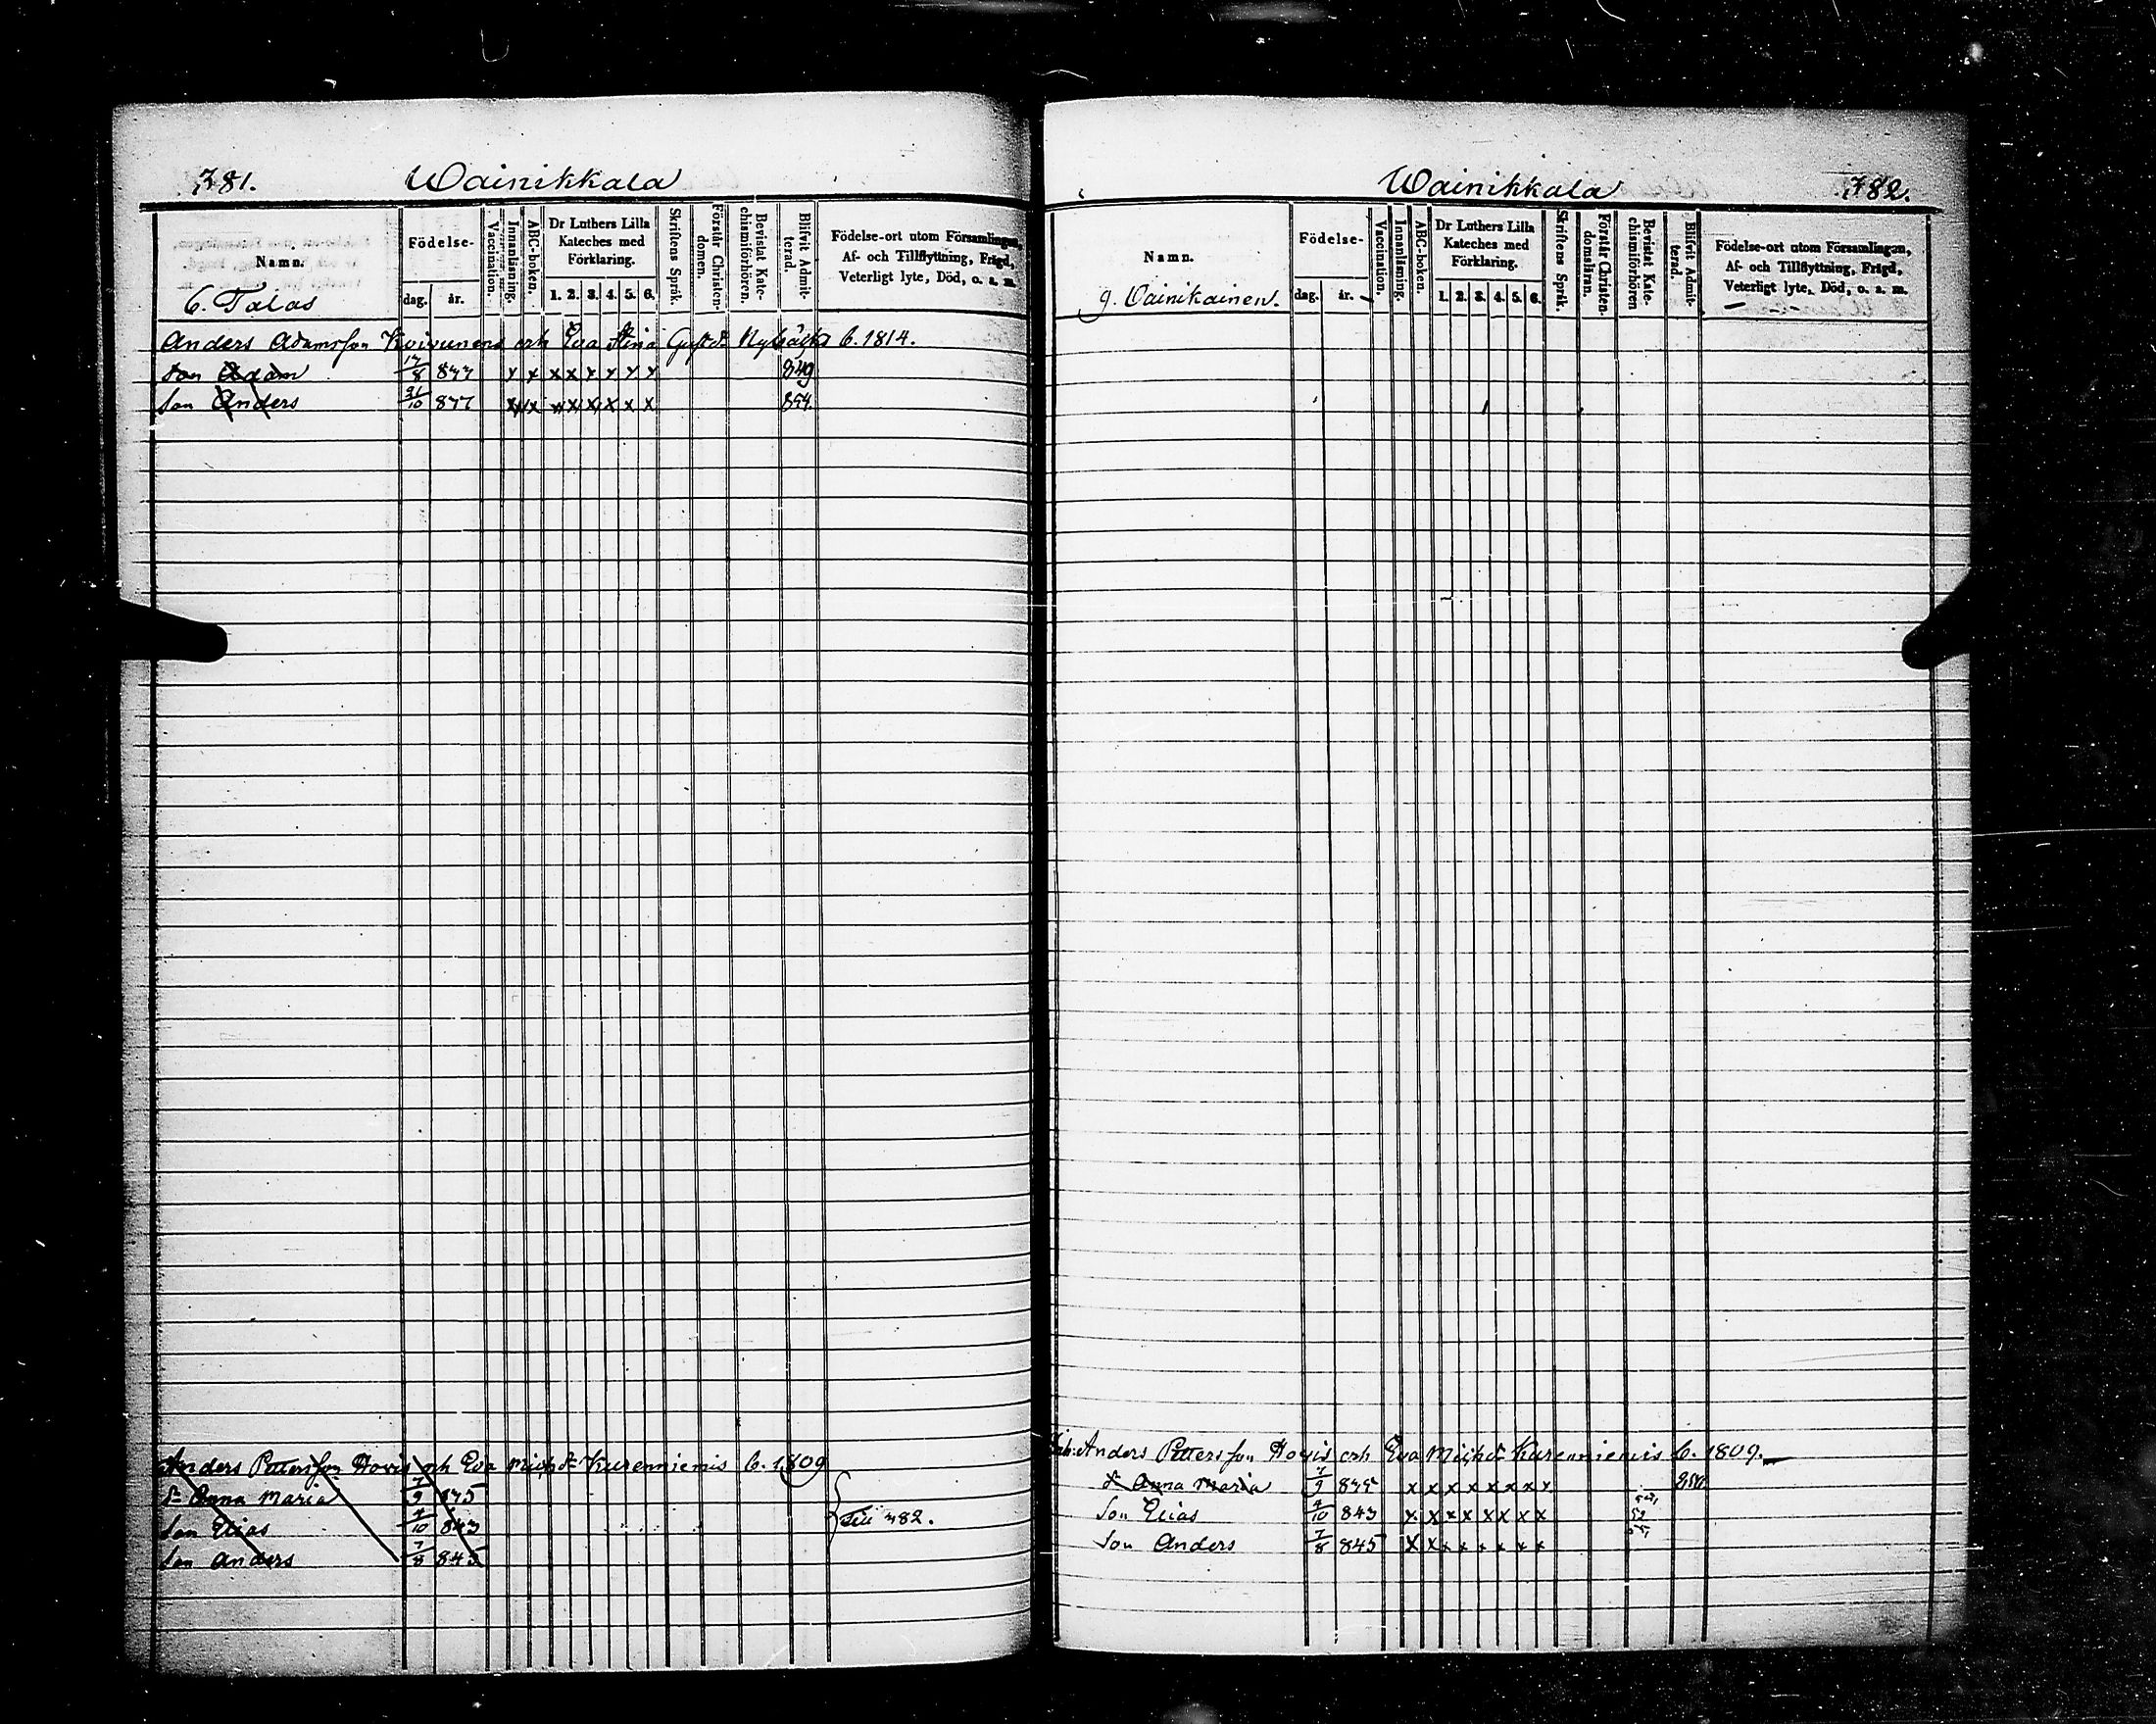 781. Wainikkala
Namn. Födelse- dag. år. Vaccination. Innanläsning. ABC-boken. Dr Luthers Lilla Kateches med Förklaring. 1. 2. 3. 4. 5. 6. Skriftens Språk. Förstår Christendomen. Bevistat Katechismiförhören. Blifvit Admitterad. Födelse-ort utom Församlingen, Af- och Tillflyttning, Frägd, Veterligt lyte, Död, o. s. m.
6. Talas
Anders Adamsson Koivunens och Eva Stina Gust.dr b. 1814.
Son Adam 17/8 x x x x x x x x 849
Son Anders 31/10 x x x x x x x x 854.
Anders Pettersson Hovis och Eva Mich.dr Kurenniemis b. 1809
dr Anna Maria 7/9 835
Son Elias 4/10 843 Till 782.
Son Anders 7/8 845
Wainikkala 782.
Namn. Födelse- dag. år. Vaccination. Innanläsning. ABC-boken. Dr Luthers Lilla Kateches med Förklaring. 1. 2. 3. 4. 5. 6. Skriftens Språk. Förstår Christendomsläran. Bevistat Katechismiförhören Blifvit Admitterad. Födelse-ort utom Församlingen, Af- och Tillflyttning, Frägd, Veterligt lyte, Död, o. s. m.
9. Vainikainen.
Anders Pettersson Hovis och Eva Mich.dr Kurenniemis b. 1809.
dr Anna Maria 7/9 835 x x x x x x x x
Son Elias 4/10 843 x x x x x x x x
Son Anders 7/8 845 x x x x x x x x